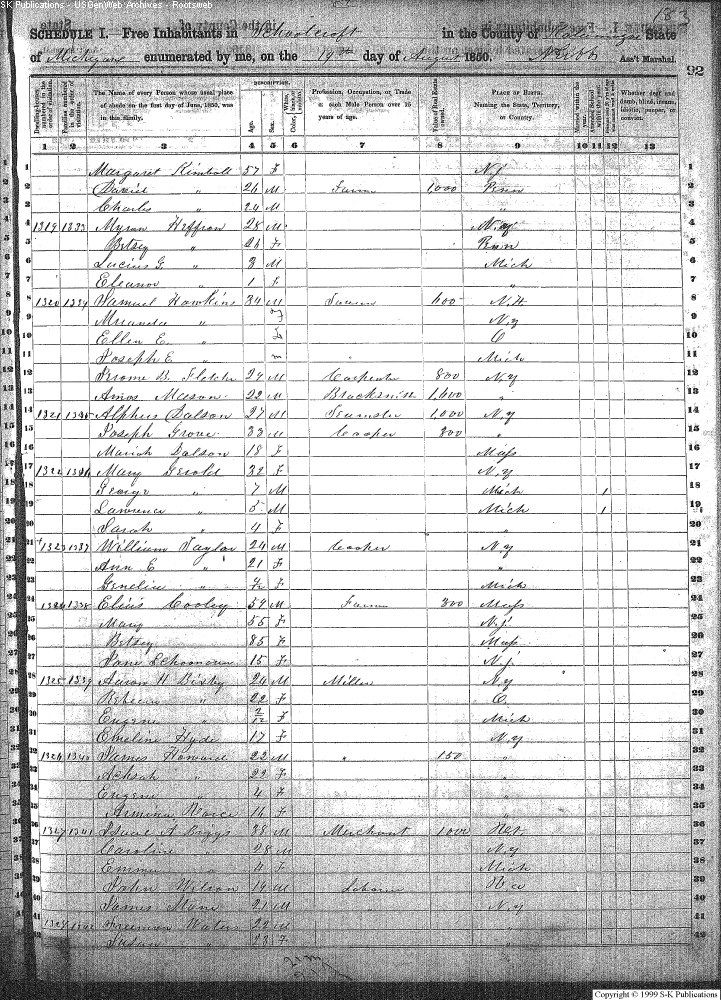 SK Publications - USGenWeb Archives - Rootsweb
183
SCHEDULE I. Free Inhabitants in Schoolcraft in the County of Kalamazoo State
of Michigan enumerated by me, on the 19th day of August 1850. Ass't Marshal.
92
Dwelling-houses numbered in the order of visitation.
Families numbered in the order of visitation.
The Name of every Person whose usual place of abode on the first day of June, 1850, was in this family.
DESCRIPTION.
Age.
Sex.
Color, White, black, or mulatto.
Profession, Occupation, or Trade of each Male Person over 15 years of age.
Value of Real Estate owned.
PLACE OF BIRTH. Naming the State, Territory, or Country.
Married within the year.
Attended School within the year.
Whether deaf and dumb, blind, insane, idiotic, pauper, or convict.
1 2 3 4 5 6 7 8 9 10 11 12 13
1 Margaret Kimball 57 F N.J. 1
2 Daniel " 26 M Farm 1,000 Penn 2
3 Charles " 24 M " 3
4 1319 1333 Myron Heffron 28 M N.Y 4
5 Betsey " 26 F Penn 5
6 Lucius G. " 3 M Mich 6
7 Eleanor " 1 F " 7
8 1320 1334 Samuel Hawkins 34 M 600 N.H 8
9 Miranda " F N.Y 9
10 Ellen E. " F O 10
11 Joseph E. " m Mich 11
12 Jerome B. Fletcher 24 M Carpenter 800 N.Y 12
13 Amos Mason 22 M Blacksmith 1,000 " 13
14 1321 1335 Alpheus Dalson 27 M Teamster 1,000 N.Y 14
15 Joseph Grove 33 M Cooper 800 " 15
16 Mariah Dalson 18 F Mass 16
17 1322 1336 Mary Gerold 32 F N.Y 17
18 George " 7 M Mich 1 18
19 Lawrence " 5 M Mich 1 19
20 Sarah " 4 F " 20
21 1323 1337 William Taylor 24 M Cooper N.Y 21
22 Ann E " 21 F " 22
23 " F Mich 23
24 1324 1338 Elias Cooley 59 M Farm 300 Mass 24
25 Mary " 55 F N.J. 25
26 Betsey " 85 F Mass 26
27 Jane Schomoun 15 F N.J. 27
28 1325 1339 Aaron H Bixby 24 M Miller N.Y 28
29 Rebecca " 22 F O. 29
30 Eugene " 2/12 F Mich 30
31 Emeline Hyde 17 F N.Y 31
32 1326 1340 James Howard 22 M " 150 " 32
33 Achsah " 22 F " 33
34 Eugene " 4 F " 34
35 Armina 16 F " 35
36 1327 1341 Isaac A Briggs 38 M Merchant 1,000 36
37 Caroline " 28 M N.Y 37
38 Emma " 4 F Mich 38
39 John Wilson 19 M Laborer 39
40 James Mann 21 M " N.Y 40
41 1328 1342 Freeman Waters 22 M " 41
42 Susan " 23 F " 42
Copyright © 1999 S-K Publications